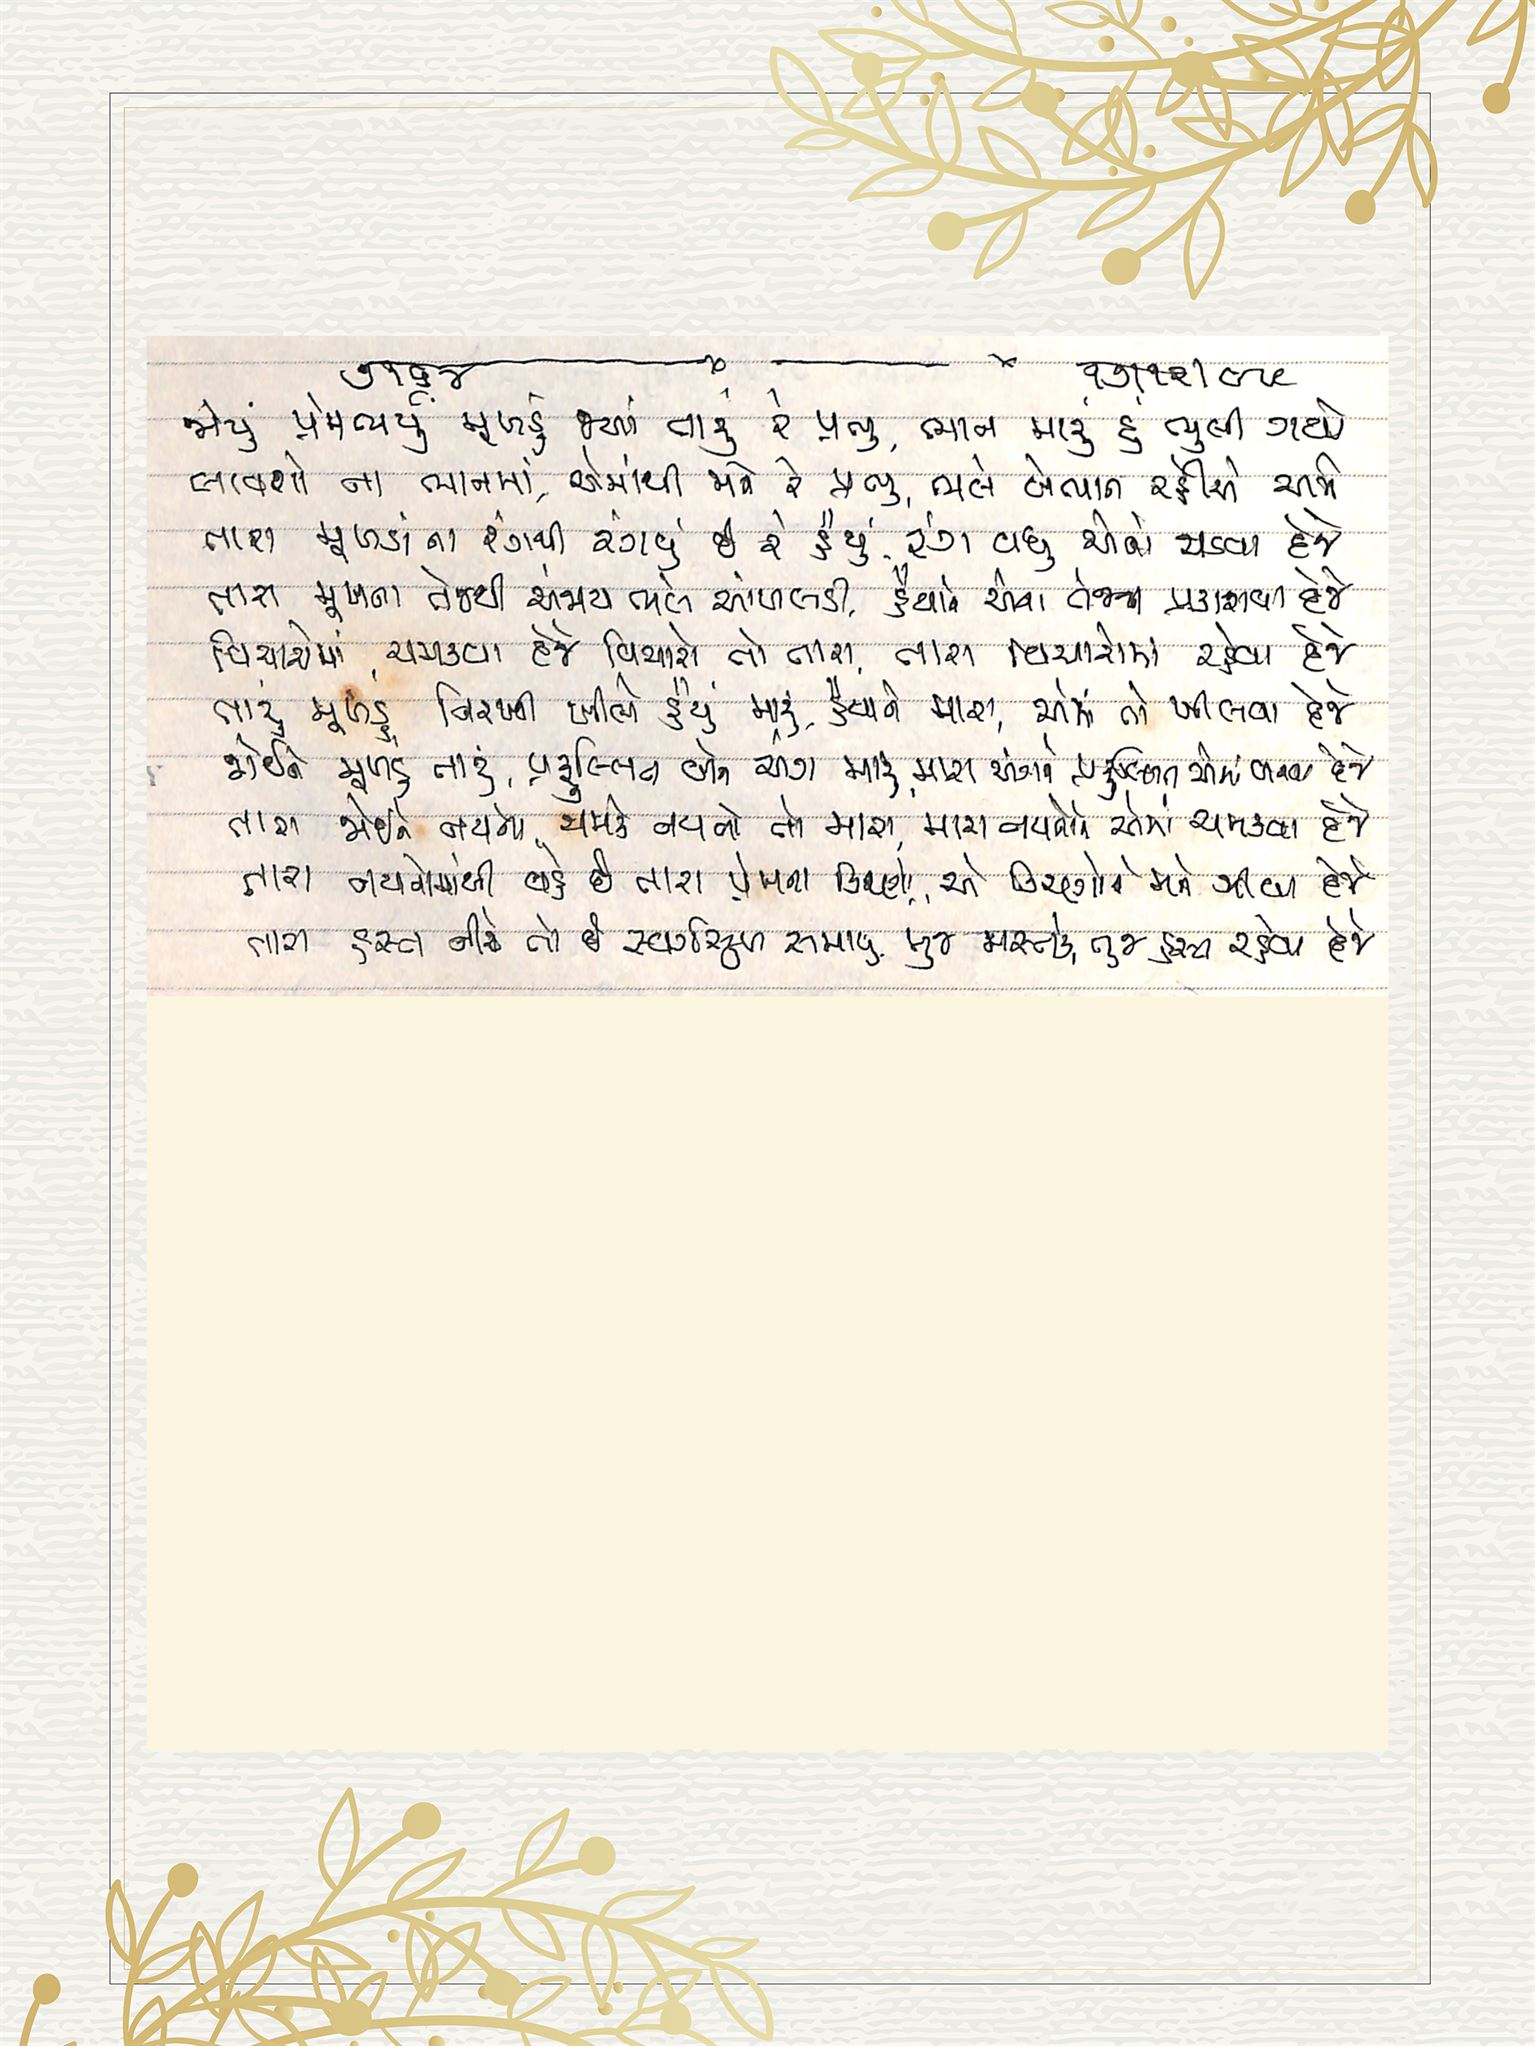 જોયું પ્રેમભર્યું મૂખડું જ્યાં તારું રે પ્રભુ, ભાન મારું હું ભુલી ગયો
લાવશો ના ભાનમાં, એમાંથી મને રે પ્રભુ, ભલે બેભાન રહીએ અમે
તારા મૂખડાંના રંગથી રંગાયું છે રે હૈયું, રંગ વધુ એનો ચડવા દેજે
તારા મૂખના તેજથી અંજાય ભલે આંખલડી, હૈયાને એના તેજમાં પ્રકાશવા દેજે
વિચારોમાં ચમકવા દેજે વિચારો તો તારા, તારા વિચારોમાં રહેવા દેજે
તારું મૂખડું નિરખી ખીલે હૈયું મારું, હૈયાને મારા, એમાં તો ખીલવા દેજે
જોઈને મૂખડું તારું, પ્રફુલ્લિત બને અંગ મારું, મારા અંગને પ્રફુલ્લિત એમાં બનવા દેજે
તારા જોઈને નયનો, ચમકે નયનો તો મારા, મારા નયનોને એમાં ચમકવા દેજે
તારા નયનોમાંથી વહે છે તારા પ્રેમના કિરણો, એ કિરણોને મને ઝીલવા દેજે
તારા હસ્ત નીચે તો છે સ્વર્ગસુખ સમાયું, મુજ મસ્તકે, તુજ હસ્ત રહેવા દેજે